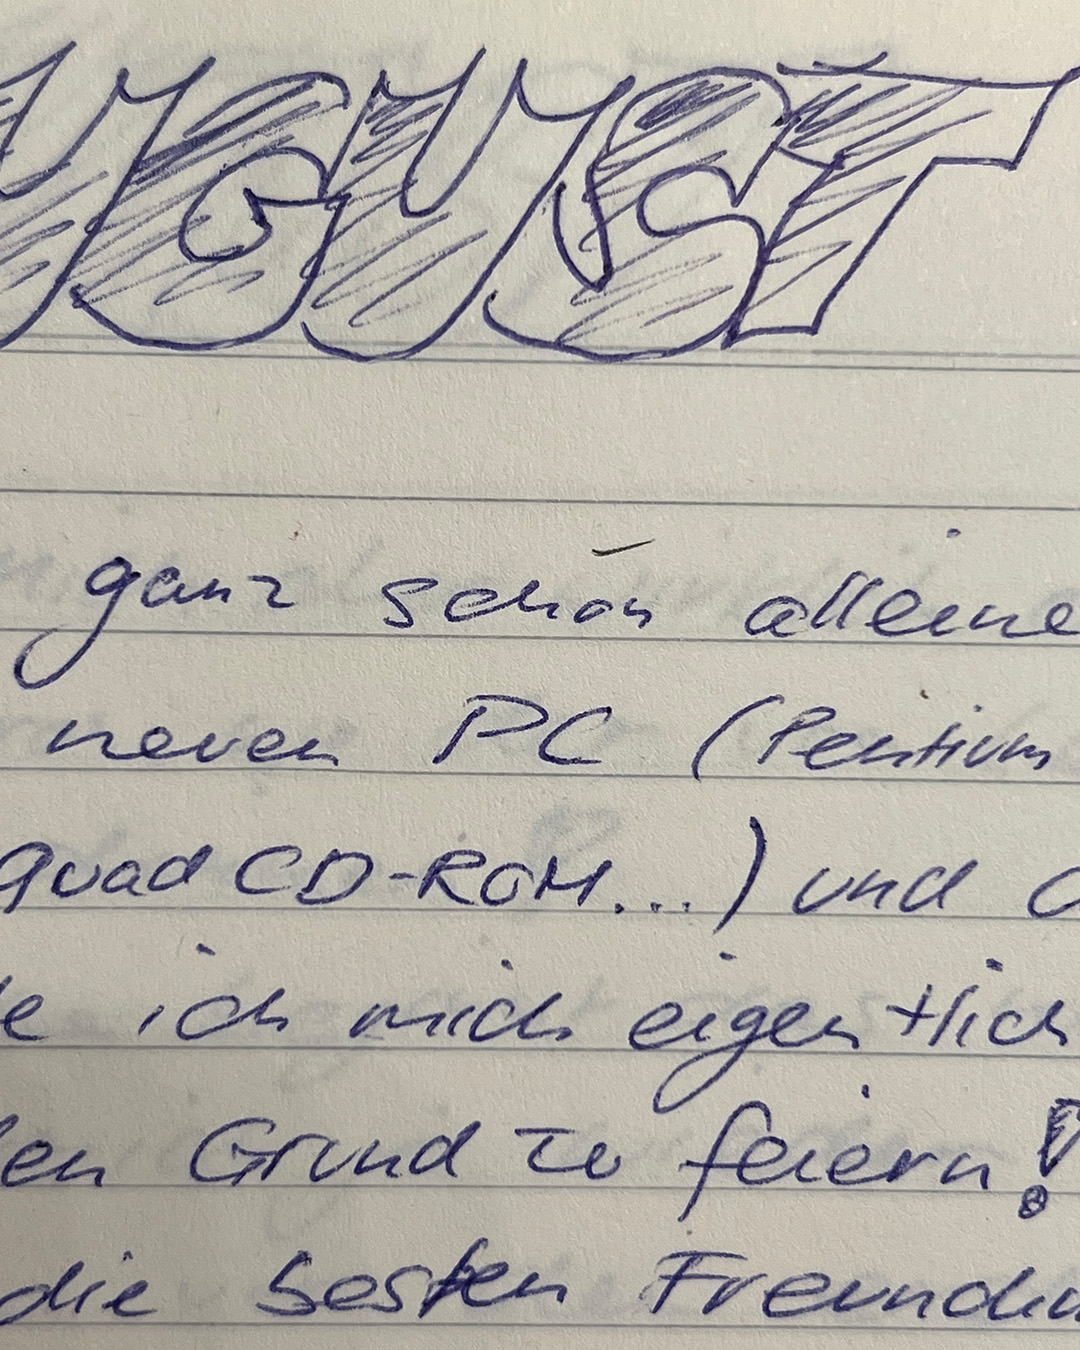 UGUST
ganz schön alleine
neuen PC (Pentium
Quad CD-ROM...) und
ich mich eigentlich
en Grund zu feiern!
die besten Freundin